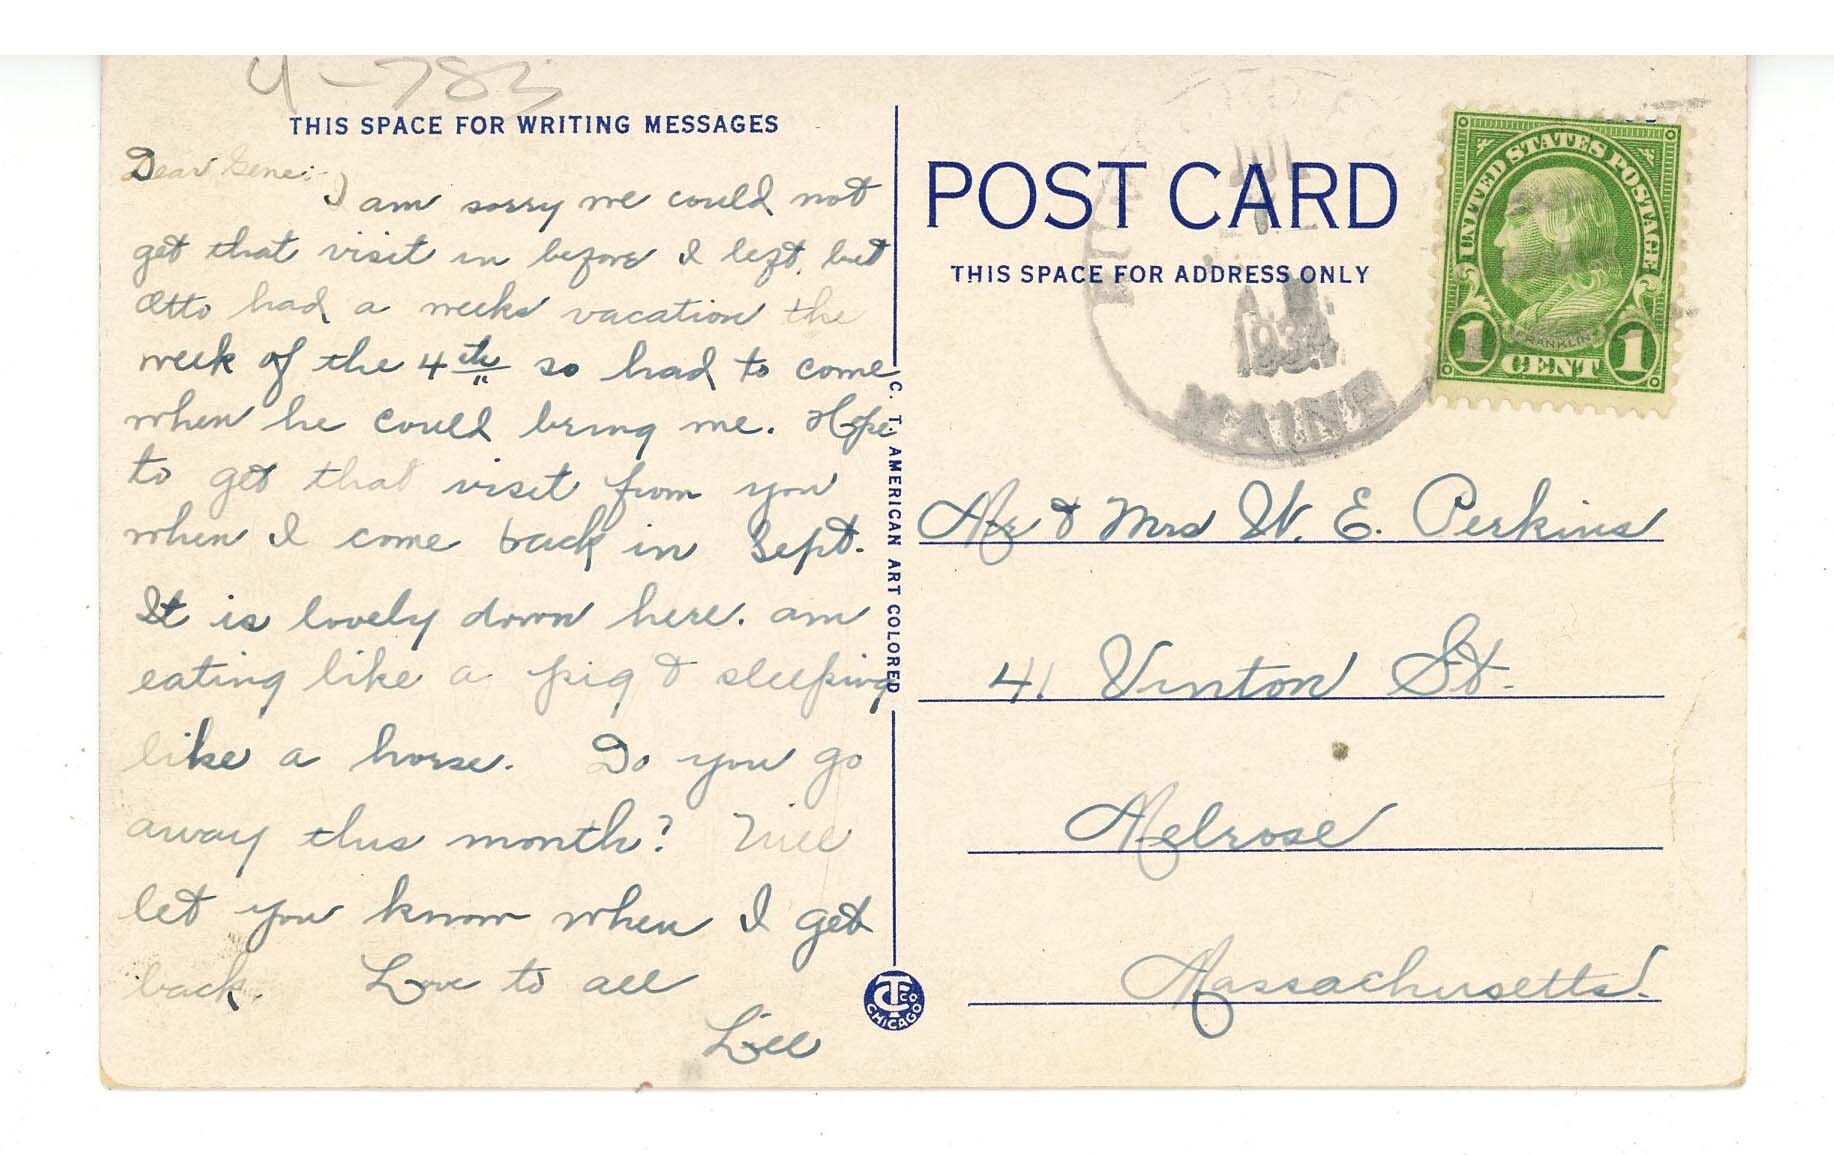 4-783
THIS SPACE FOR WRITING MESSAGES
Dear Gene:-
I am sorry we could not
get that visit in before I left, but
Otto had a weeks vacation the
week of the 4th so had to come
when he could bring me. Hope
to get that visit from you
when I come back in Sept.
It is lovely down here. am
eating like a pig & sleeping
like a horse. Do you go
away this month? Will
let you know when I get
back. Love to all
Lill
C. T. AMERICAN ART COLORED
CT CO
CHICAGO
POST CARD
THIS SPACE FOR ADDRESS ONLY
JUL
A.M.
1934
MAINE
UNITED STATES POSTAGE
FRANKLIN
1 CENT 1
Mr & Mrs W. E. Perkins
41 Vinton St.
Melrose
Massachusetts.